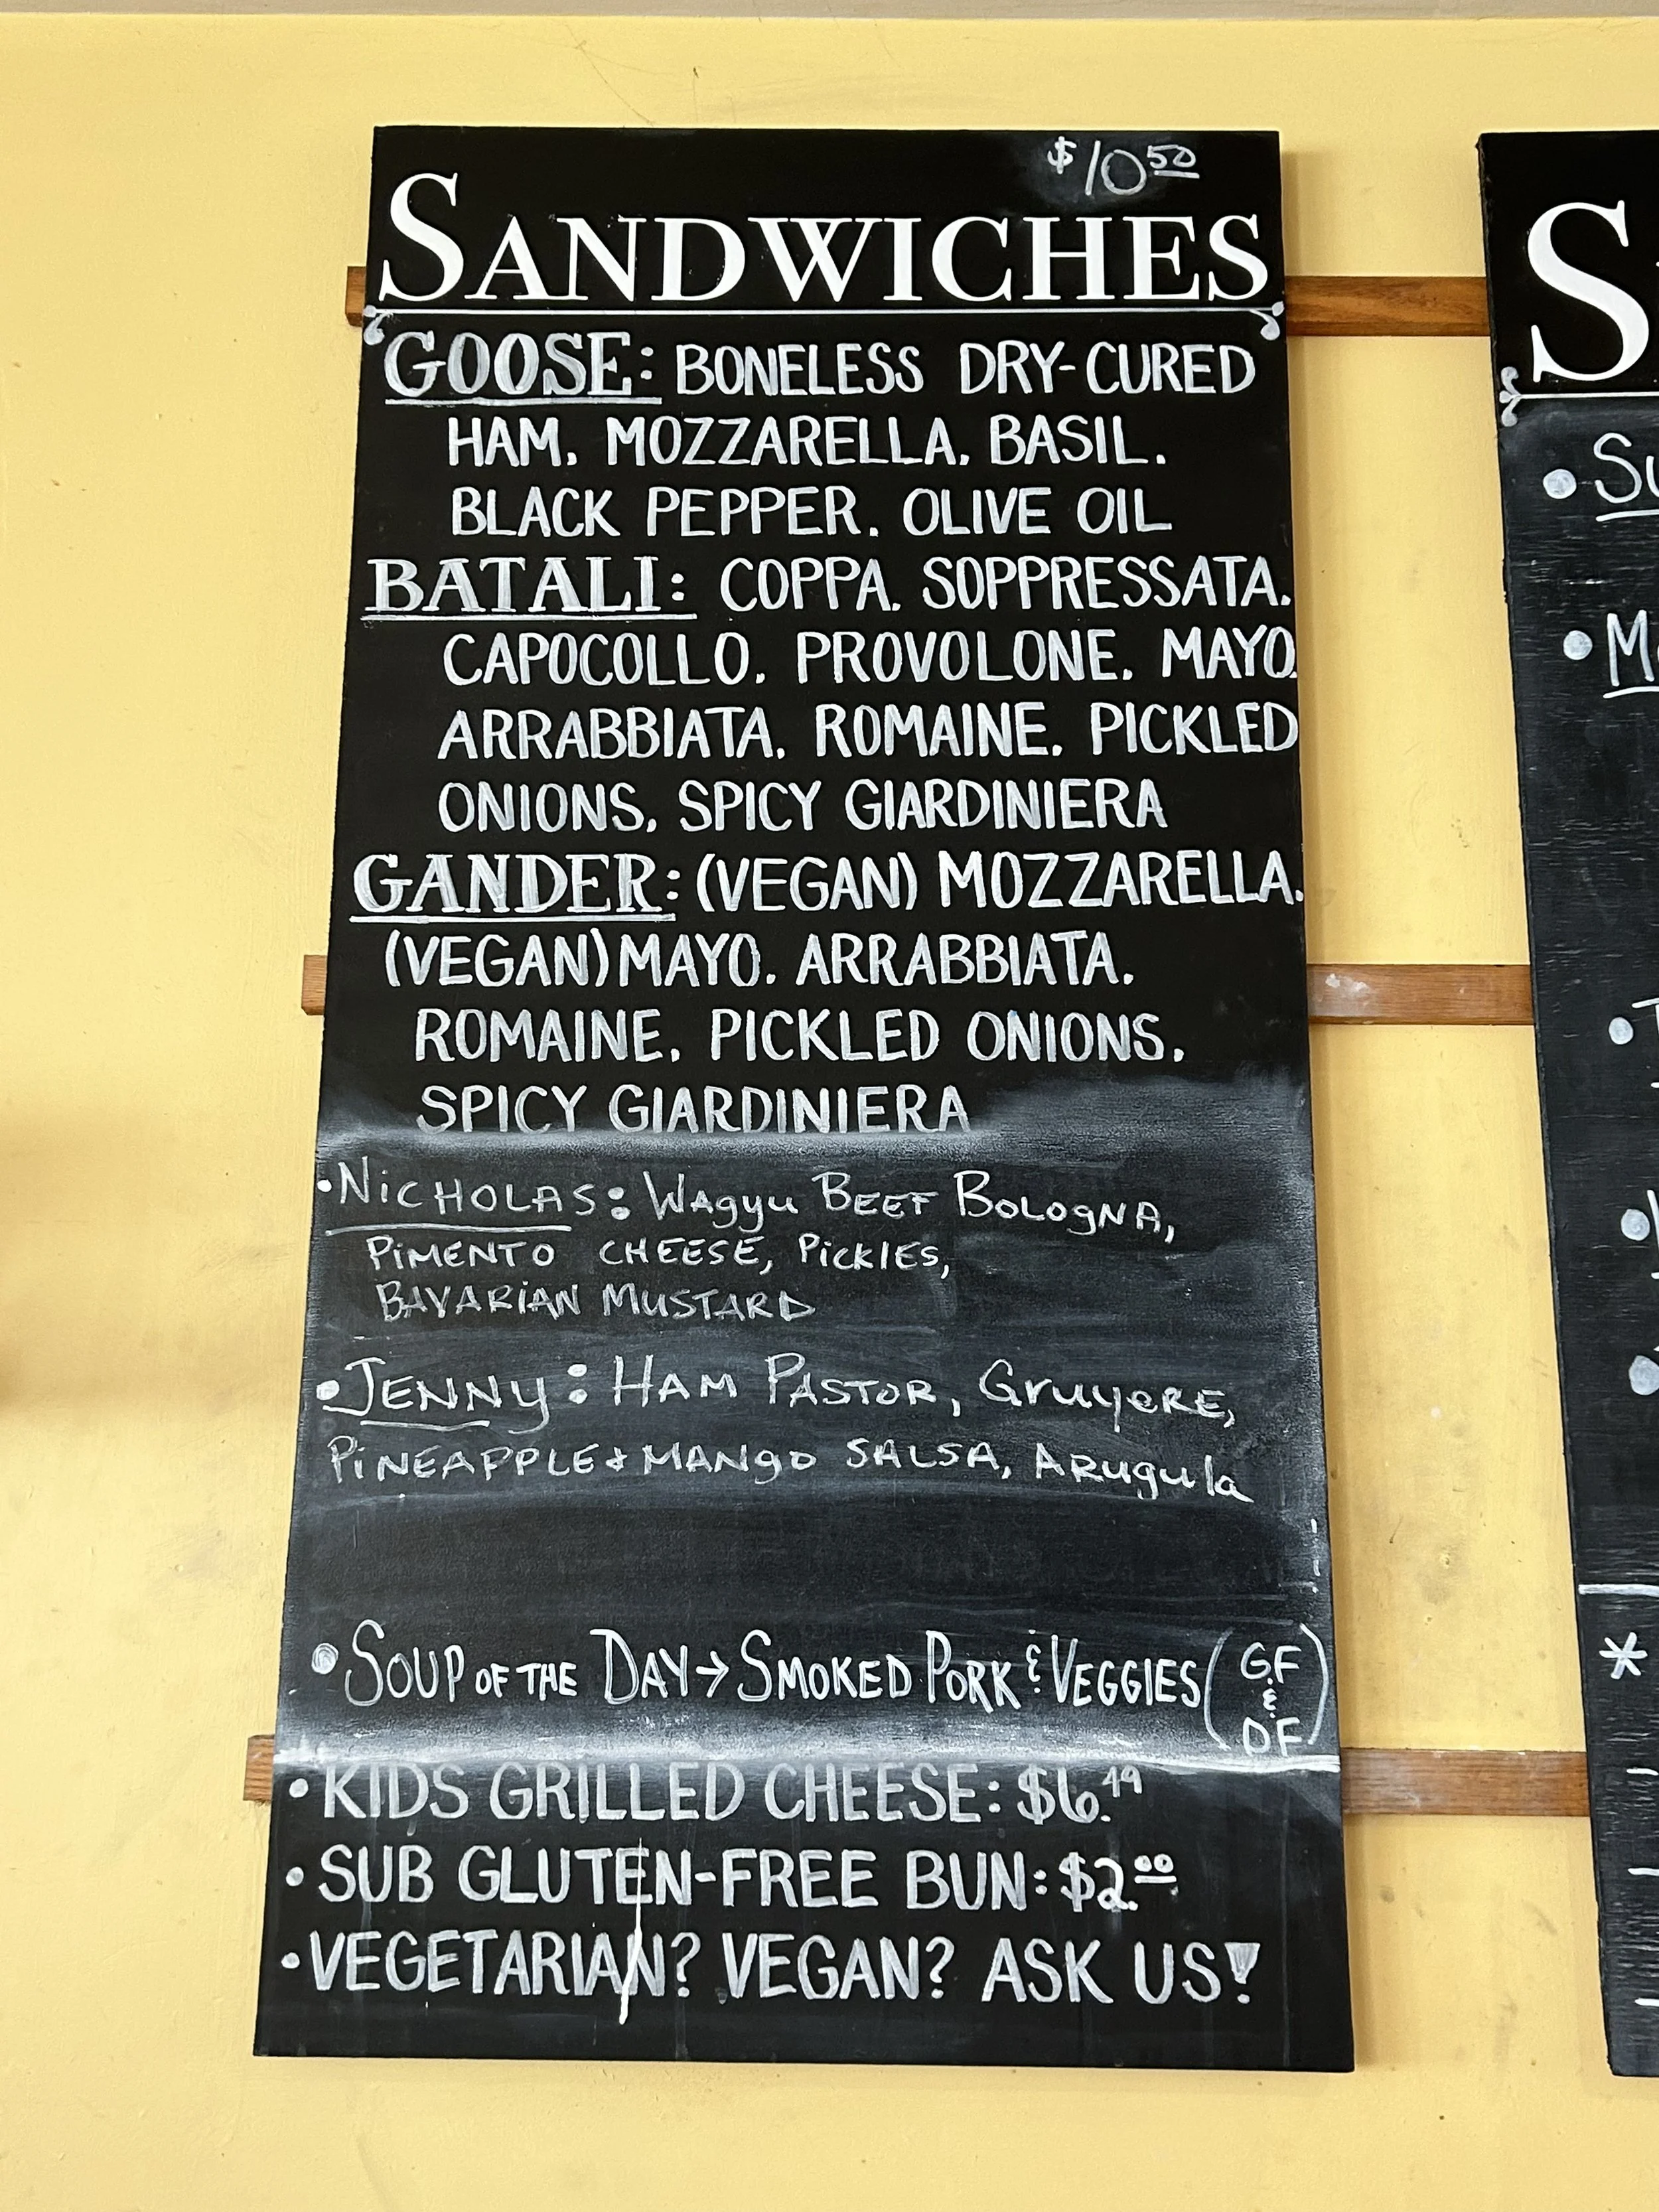 $10 50
SANDWICHES
GOOSE: BONELESS DRY-CURED
HAM, MOZZARELLA, BASIL,
BLACK PEPPER, OLIVE OIL
BATALI: COPPA, SOPPRESSATA,
CAPOCOLLO, PROVOLONE, MAYO,
ARRABBIATA, ROMAINE, PICKLED
ONIONS, SPICY GIARDINIERA
GANDER: (VEGAN) MOZZARELLA,
(VEGAN) MAYO, ARRABBIATA,
ROMAINE, PICKLED ONIONS,
SPICY GIARDINIERA
• NICHOLAS: WAgyu BEEF BOLOgNA,
PiMENTO CHEESE, PiCKlES,
BAVARiAN MUSTARD
• JENNy: HAM PASTOR, GruyeRE,
PiNEAPPLE + MANgo SALSA, ARugula
• SOUP OF THE DAY → SMOKED PORK & VEGGIES (GF & DF)
• KIDS GRILLED CHEESE: $6.49
• SUB GLUTEN-FREE BUN: $2.00
• VEGETARIAN? VEGAN? ASK US!
S
• Su
• M
*